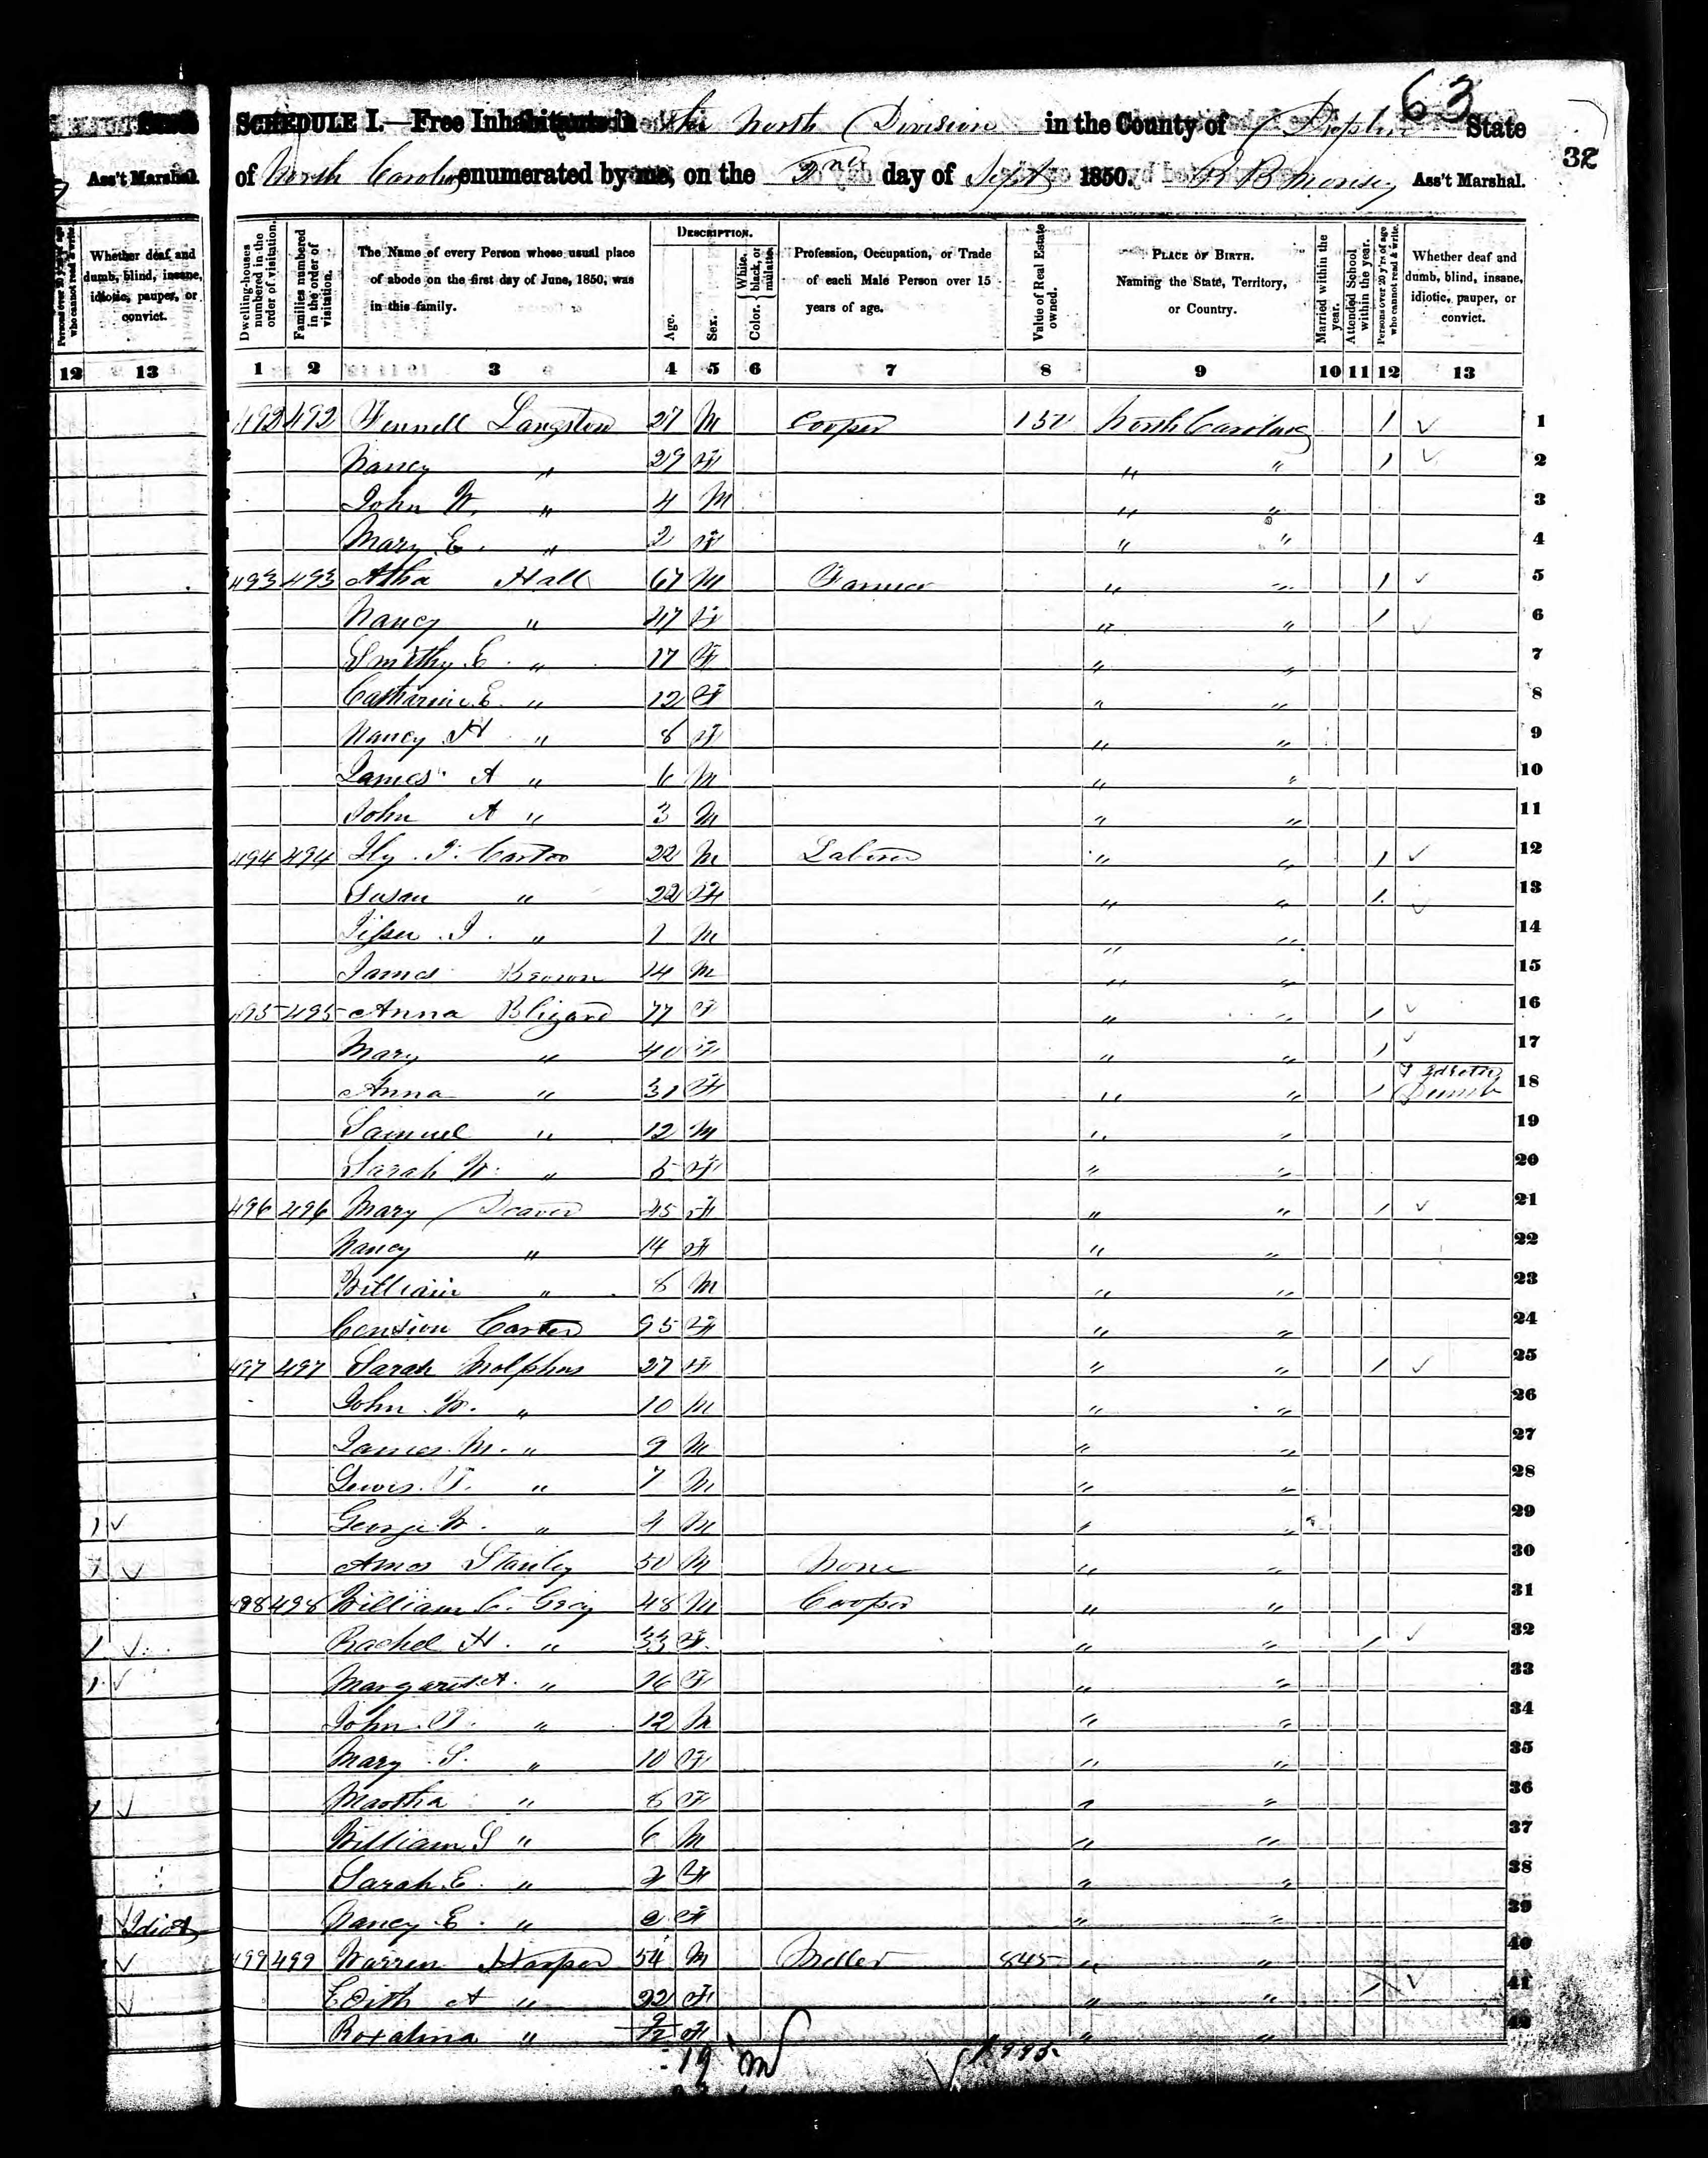 63
32
SCHEDULE I.—Free Inhabitants in the North Division in the County of Duplin State
of North Carolina enumerated by me, on the 2nd day of Sept 1850. R B Morisey Ass't Marshal.
Ass't Marshal.
Persons over 20 y'rs of age who cannot read & write.
Whether deaf and dumb, blind, insane, idiotic, pauper, or convict.
12 13
Dwelling-houses numbered in the order of visitation.
Families numbered in the order of visitation.
The Name of every Person whose usual place of abode on the first day of June, 1850, was in this family.
DESCRIPTION.
Age.
Sex.
Color. White, black, or mulatto.
Profession, Occupation, or Trade of each Male Person over 15 years of age.
Value of Real Estate owned.
PLACE OF BIRTH. Naming the State, Territory, or Country.
Married within the year.
Attended School within the year.
Persons over 20 y'rs of age who cannot read & write.
Whether deaf and dumb, blind, insane, idiotic, pauper, or convict.
1 2 3 4 5 6 7 8 9 10 11 12 13
492 492 Fennell Langston 27 M Cooper 150 North Carolina 1 ✓ 1
Nancy " 29 F " " 1 ✓ 2
John W. " 4 M " " 3
Mary E. " 2 F " " 4
493 493 Atha Hall 67 M Farmer " " 1 ✓ 5
Nancy " 47 F " " 1 ✓ 6
Smithy E. " 17 F " " 7
Catharine E. " 12 F " " 8
Nancy H " 8 F " " 9
James A " 6 M " " 10
John A " 3 M " " 11
494 494 Hy. J. Carter 22 M Laborer " " 1 ✓ 12
Susan " 22 F " " 1 ✓ 13
J. " 1 M " " 14
James Brown 14 M " " 15
495 495 Anna Blizard 77 F " " 1 ✓ 16
Mary " 40 F " " 1 ✓ 17
Anna " 31 F " " 1 Dumb 18
Samuel " 12 M " " 19
Sarah W. " 5 F " " 20
496 496 Mary Deaver 45 F " " 1 ✓ 21
Nancy " 14 F " " 22
William " 8 M " " 23
Carter 95 F " " 24
497 497 Sarah Molphus 27 F " " 1 ✓ 25
John W. " 10 M " " 26
James M. " 9 M " " 27
Lewis F. " 7 M " " 28
1 ✓ George W. " 4 M " " 29
1 ✓ Amos Stanley 50 M None " " 30
498 498 William C. Gray 48 M Cooper " " 31
1 ✓ Rachel H. " 33 F " " 1 ✓ 32
1 ✓ Margaret A. " 16 F " " 33
John F. " 12 M " " 34
Mary S. " 10 F " " 35
1 ✓ Martha " 8 F " " 36
William S " 6 M " " 37
Sarah E. " F " " 38
✓ Idiot Nancy E. " F " " 39
✓ 499 499 Warren Harper 54 M Miller 845 " " 40
✓ Edith A " 22 F " " 1 ✓ 41
Roxalina " 9/12 F " " 42
19 m 995